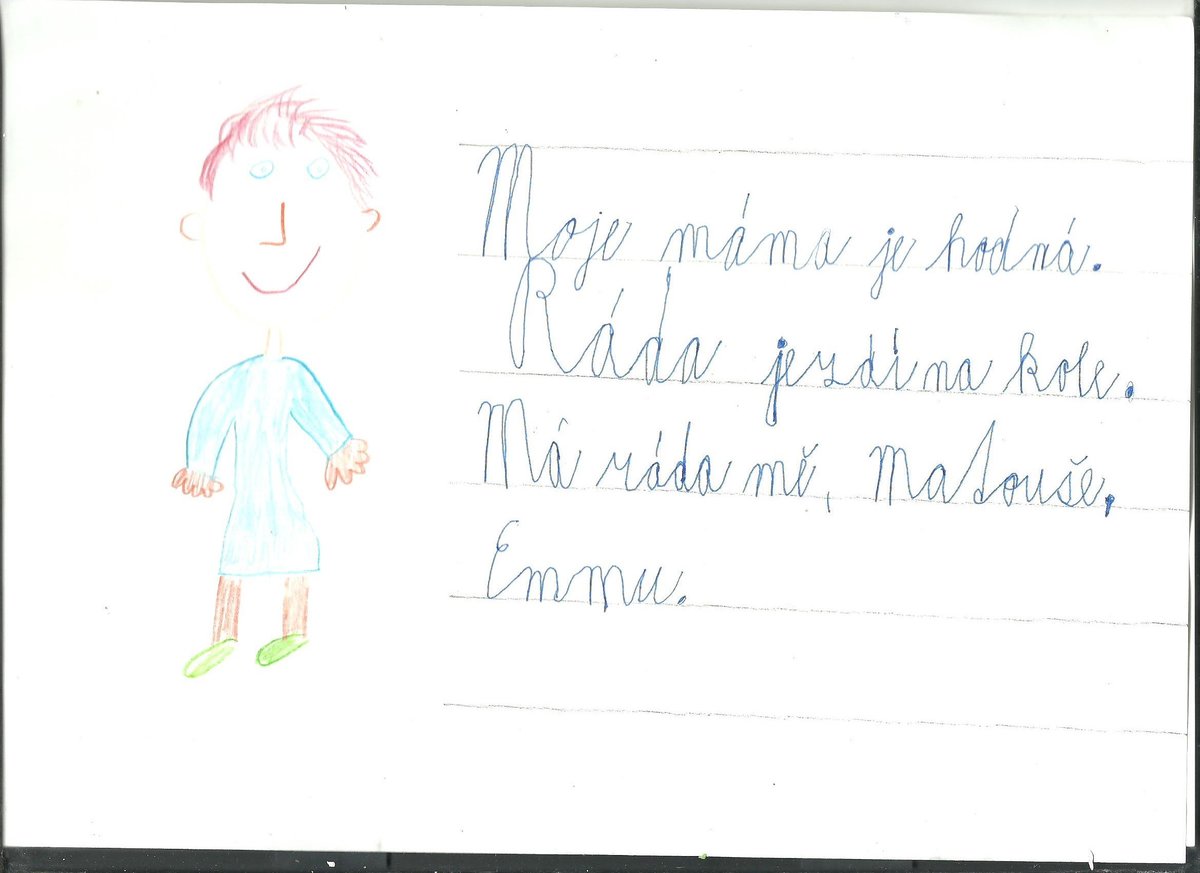 Moje máma je hodná.
Ráda jezdí na kole.
Má ráda mě, Matouše,
Emmu.